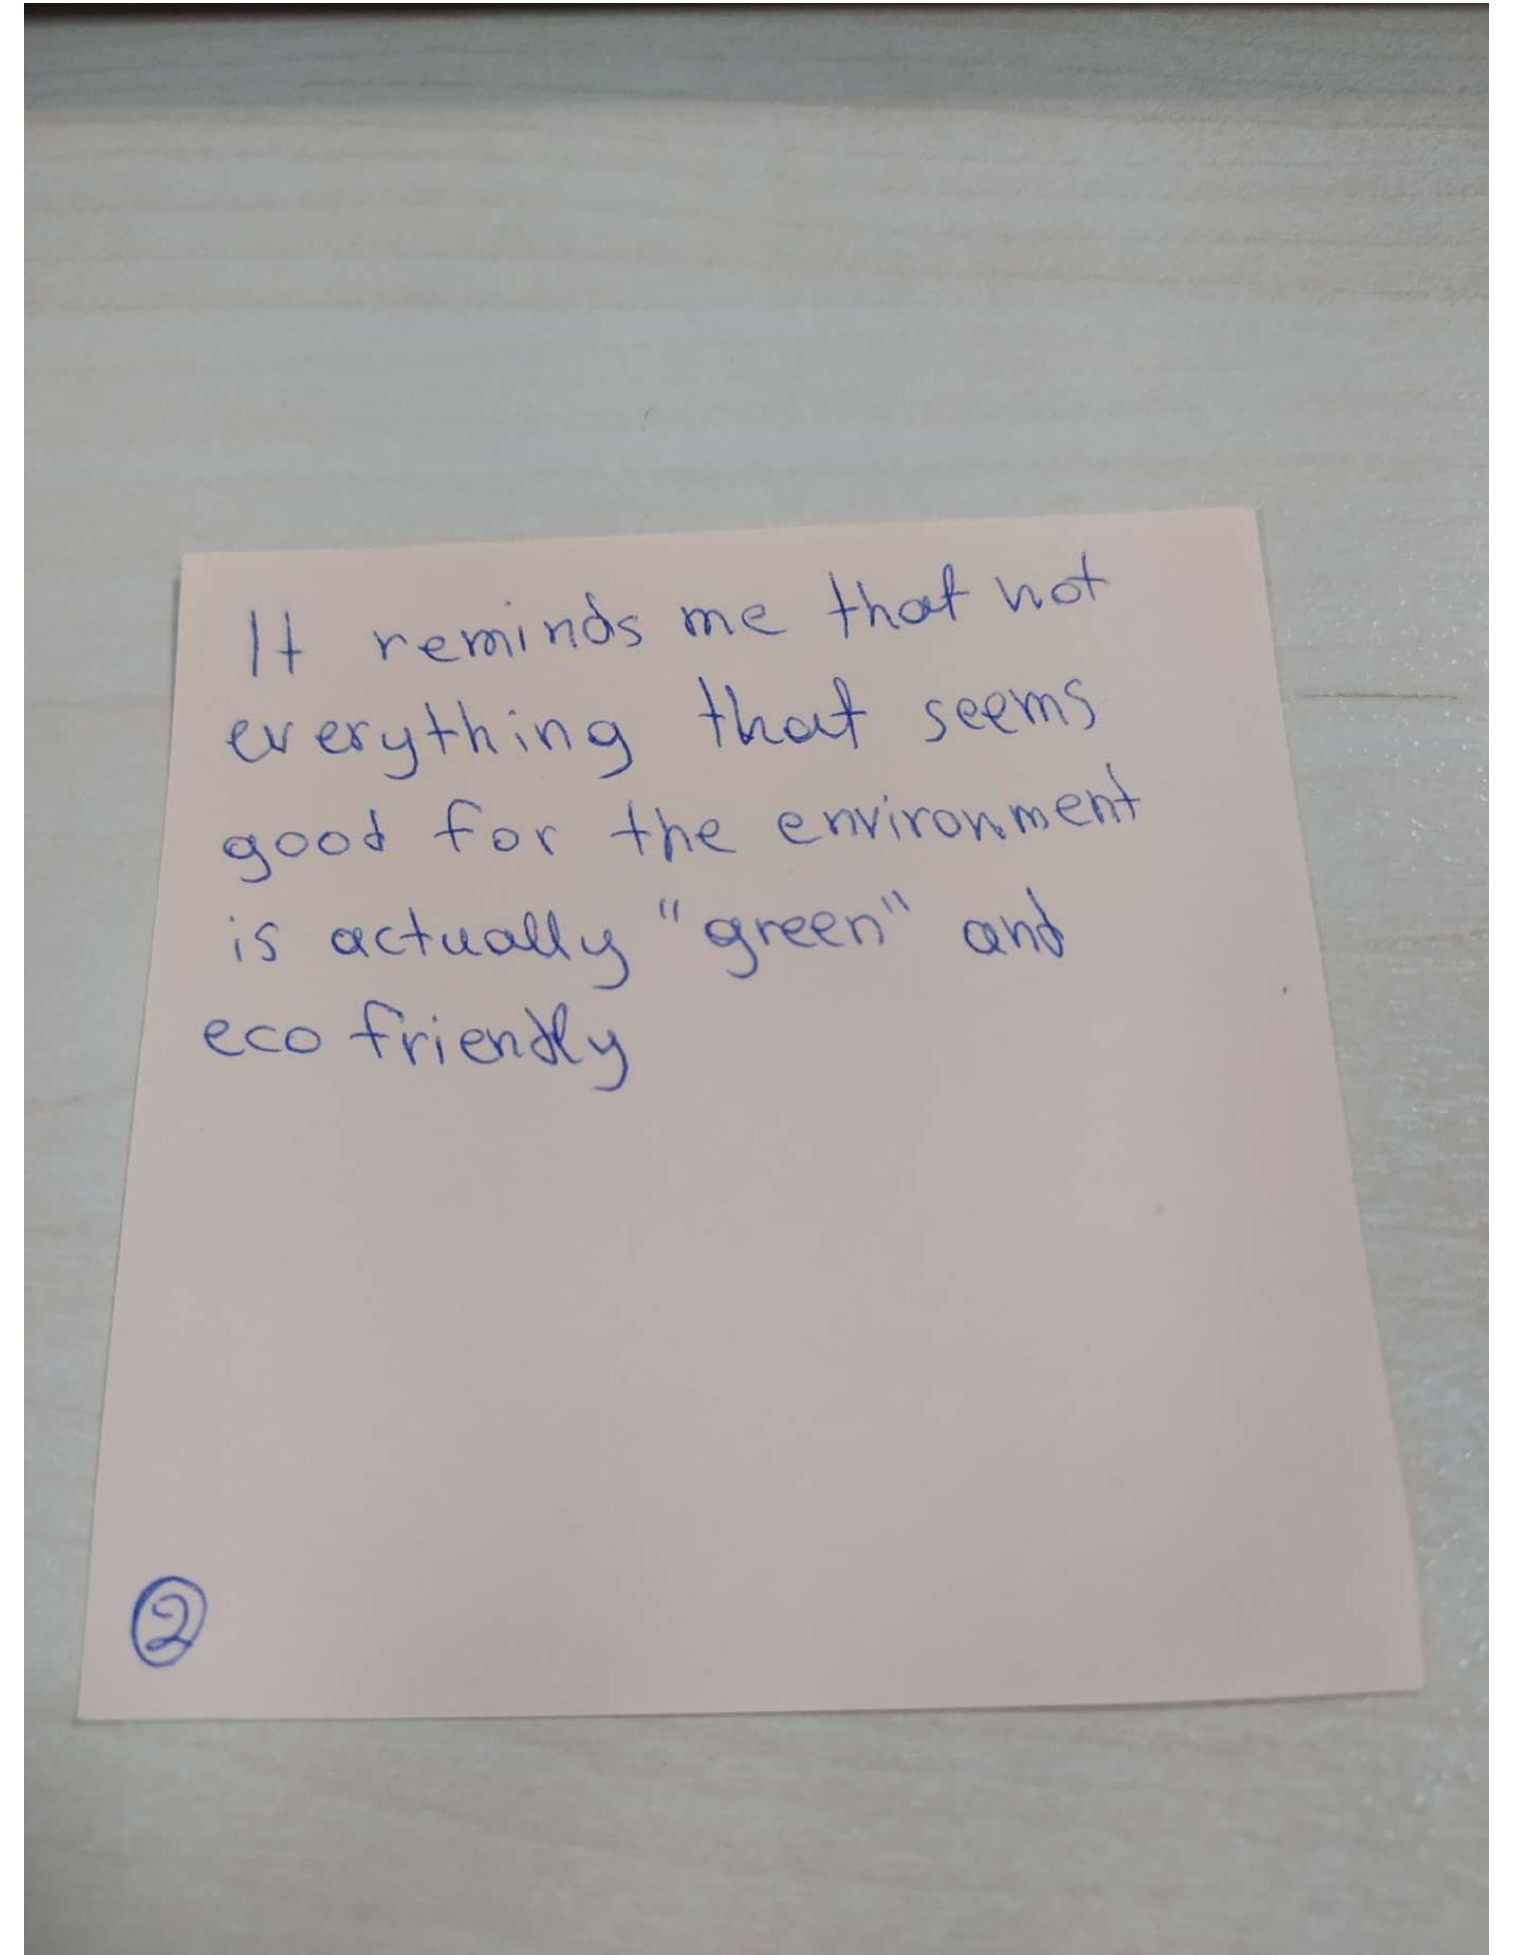 It reminds me that not
everything that seems
good for the environment
is actually "green" and
eco friendly
2